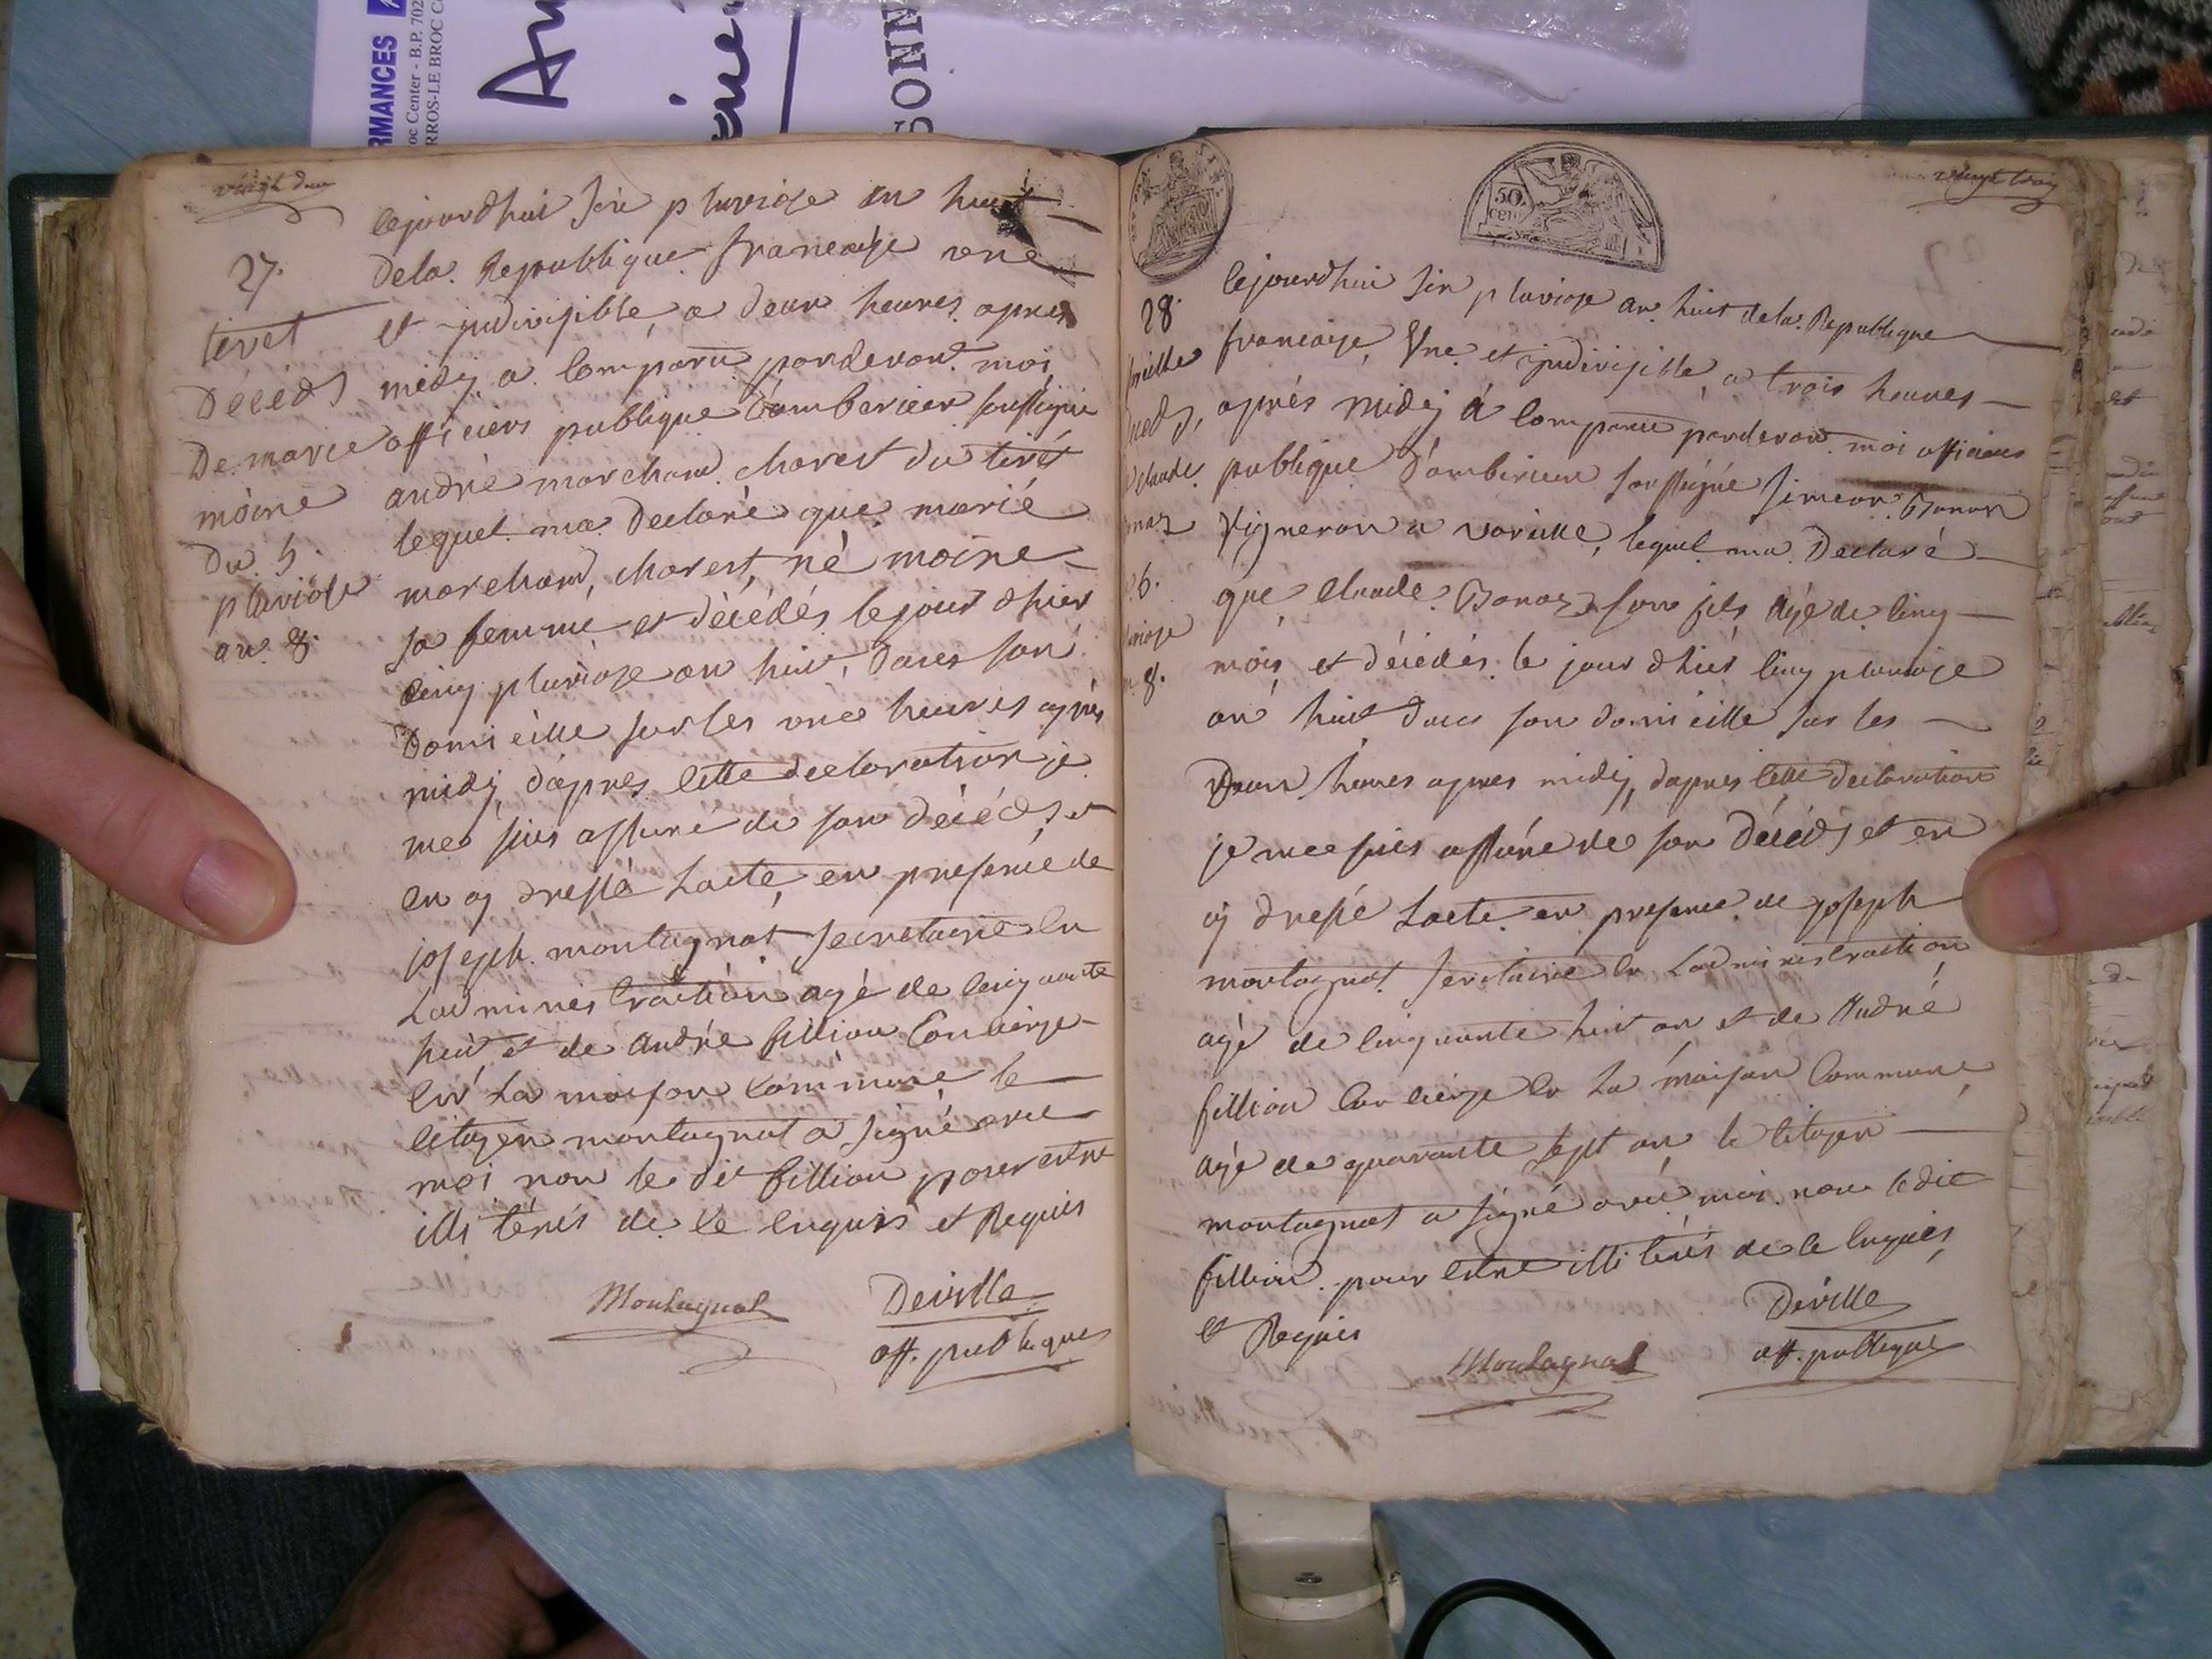 RMANCES
oc Center - B.P. 702
RROS-LE BROC C
An
SONN
vingt deux
27.
tiret
Décéds
De marie
moine
Du 5.
pluviose
an 8.
Cejourdhui sixe pluviose an huit
dela Republique francaise une
et indivisible, a deux heures apres
midy a Comparu pardevant moi
officiers publique d'amberieux soussigné
andré marchand charest du tirét
lequel ma declaré que marié
marchand, charest, né moine
sa femme et décédés lejour dhier
cinq pluviose an huit, dans son
Domicille sur les une heures après
midy, d'apres cette declaration je
me suis assuré de son décéds et
en ay dressé Lacte, en presence de
joseph montagnat secretaire en
Ladministraction agé de cinquante
huit et de André fillion Concierge
en La maison Commune le
citoyen montagnat a signé avec
moi non le dit fillion pour estre
illiterés de ce enquis et Requis
Montagnat
Deville
off. publique
vingt trois
50.
cen
28.
Cejourdhui six pluviose an huit dela Republique
francaise, Une et indivisible, a trois heures
aprés midy á Comparu pardevant moi officiers
publique d'amberieux soussigné simeon Bonnaz
Vigneron a vareille, lequel ma Declaré
que Claude Bonaz son fils agé de cinq
mois et décédés le jour dhier cinq pluviose
an huit dans son domicille sur les
Deux heures apres midy, dapres cette declaration
je me suis assuré de son Décéds et en
ay dressé Lacte en presence de joseph
montagnat secretaire en Ladministraction
agé de cinquante huit an et de André
fillion Concierge en La maison Commune
agé de quarante sept an le citoyen
montagnat a signé avec moi non ledit
fillion pour estre illiterés de ce enquis
et Requis
Montagnat
Deville
off. publique